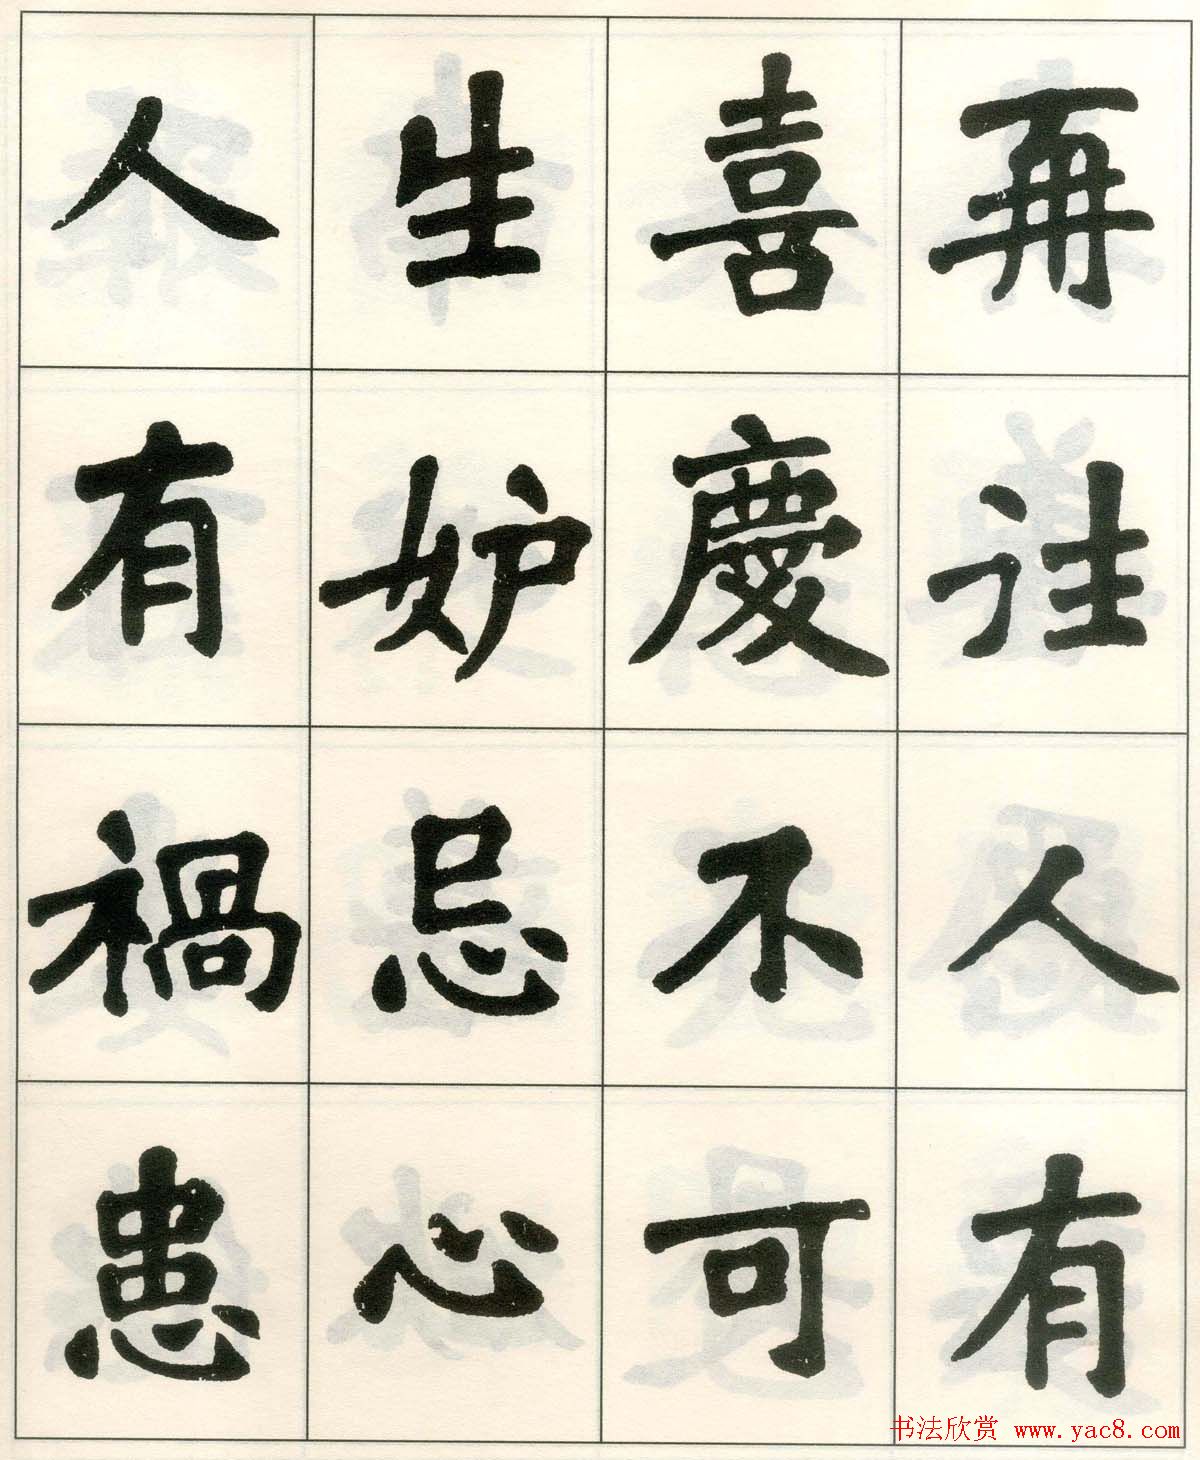 再往人有
喜慶不可
生妒忌心
人有禍患
书法欣赏 www.yac8.com